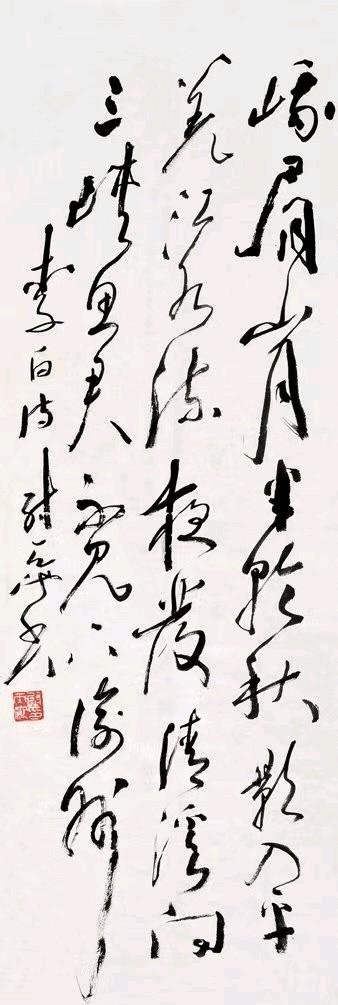 峨眉山月半轮秋影入平
羌江水流夜发清溪向
三峡思君不见下渝州
李白诗